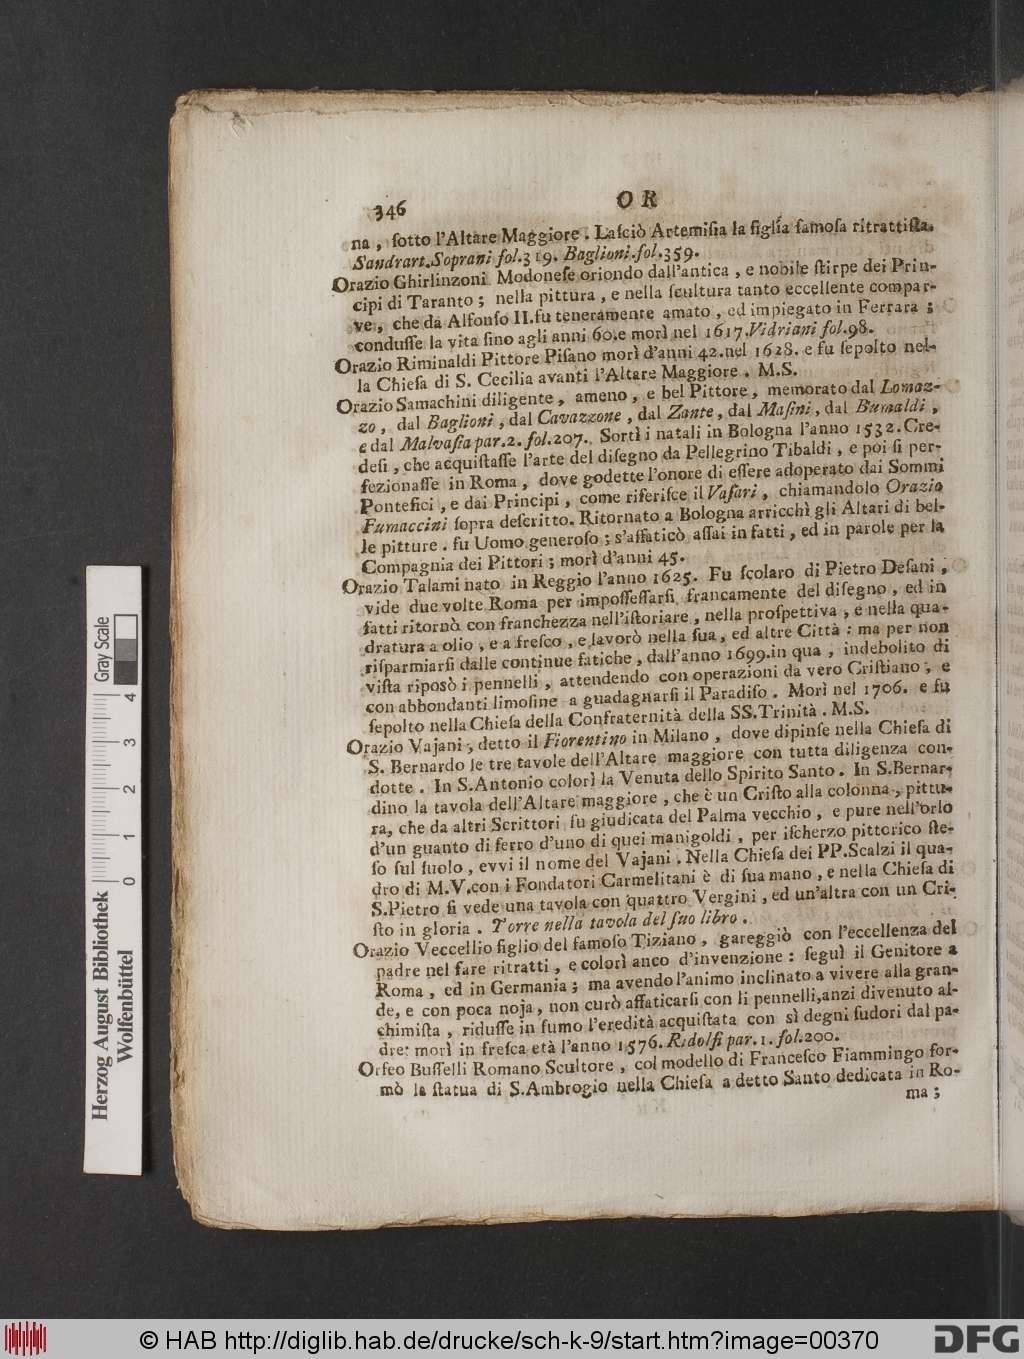 346
O R
na, ſotto l'Altare Maggiore. Laſciò Artemiſia la figlia famoſa ritrattiſta.
Sandrart. Soprani fol.319. Baglioni.fol.359.
Orazio Ghirlinzoni Modoneſe oriondo dall'antica, e nobile ſtirpe dei Prin-
cipi di Taranto; nella pittura, e nella ſcultura tanto eccellente compar-
ve, che da Alfonſo II.fu teneramente amato, ed impiegato in Ferrara;
conduſſe la vita ſino agli anni 60.e morì nel 1617.Vidriani fol.98.
Orazio Riminaldi Pittore Piſano morì d'anni 42.nel 1628. e fu ſepolto nel-
la Chieſa di S. Cecilia avanti l'Altare Maggiore. M.S.
Orazio Samachini diligente, ameno, e bel Pittore, memorato dal Lomaz-
zo, dal Baglioni, dal Cavazzone, dal Zante, dal Maſini, dal Bumaldi,
e dal Malvaſia par.2. fol.207. Sortì i natali in Bologna l'anno 1532.Cre-
deſi, che acquiſtaſſe l'arte del diſegno da Pellegrino Tibaldi, e poi ſi per-
fezionaſſe in Roma, dove godette l'onore di eſſere adoperato dai Sommi
Pontefici, e dai Principi, come riferiſce il Vaſari, chiamandolo Orazio
Fumaccini ſopra deſcritto. Ritornato a Bologna arricchì gli Altari di bel-
le pitture. fu Uomo generoſo; s'affaticò aſſai in fatti, ed in parole per la
Compagnia dei Pittori; morì d'anni 45.
Orazio Talami nato in Reggio l'anno 1625. Fu ſcolaro di Pietro Deſani,
vide due volte Roma per impoſſeſſarſi francamente del diſegno, ed in
fatti ritornò con franchezza nell'iſtoriare, nella proſpettiva, e nella qua-
dratura a olio, e a freſco, e lavorò nella ſua, ed altre Città: ma per non
riſparmiarſi dalle continue fatiche, dall'anno 1699.in qua, indebolito di
viſta riposò i pennelli, attendendo con operazioni da vero Criſtiano, e
con abbondanti limoſine a guadagnarſi il Paradiſo. Morì nel 1706. e fu
ſepolto nella Chieſa della Confraternità della SS.Trinità. M.S.
Orazio Vajani, detto il Fiorentino in Milano, dove dipinſe nella Chieſa di
S. Bernardo le tre tavole dell'Altare maggiore con tutta diligenza con-
dotte. In S.Antonio colorì la Venuta dello Spirito Santo. In S.Bernar-
dino la tavola dell'Altare maggiore, che è un Criſto alla colonna, pittu-
ra, che da altri Scrittori fu giudicata del Palma vecchio, e pure nell'orlo
d'un guanto di ferro d'uno di quei manigoldi, per iſcherzo pittorico ſte-
ſo ſul ſuolo, evvi il nome del Vajani. Nella Chieſa dei PP.Scalzi il qua-
dro di M.V.con i Fondatori Carmelitani è di ſua mano, e nella Chieſa di
S.Pietro ſi vede una tavola con quattro Vergini, ed un'altra con un Cri-
ſto in gloria. Torre nella tavola del ſuo libro.
Orazio Veccellio figlio del famoſo Tiziano, gareggiò con l'eccellenza del
padre nel fare ritratti, e colorì anco d'invenzione: ſeguì il Genitore a
Roma, ed in Germania; ma avendo l'animo inclinato a vivere alla gran-
de, e con poca noja, non curò affaticarſi con li pennelli,anzi divenuto al-
chimiſta, riduſſe in fumo l'eredità acquiſtata con sì degni ſudori dal pa-
dre: morì in freſca età l'anno 1576. Ridolfi par. 1. fol.200.
Orfeo Buſſelli Romano Scultore, col modello di Franceſco Fiammingo for-
mò la ſtatua di S.Ambrogio nella Chieſa a detto Santo dedicata in Ro-
ma;
Herzog August Bibliothek
Wolfenbüttel
Gray Scale
0 1 2 3 4
© HAB http://diglib.hab.de/drucke/sch-k-9/start.htm?image=00370
DFG